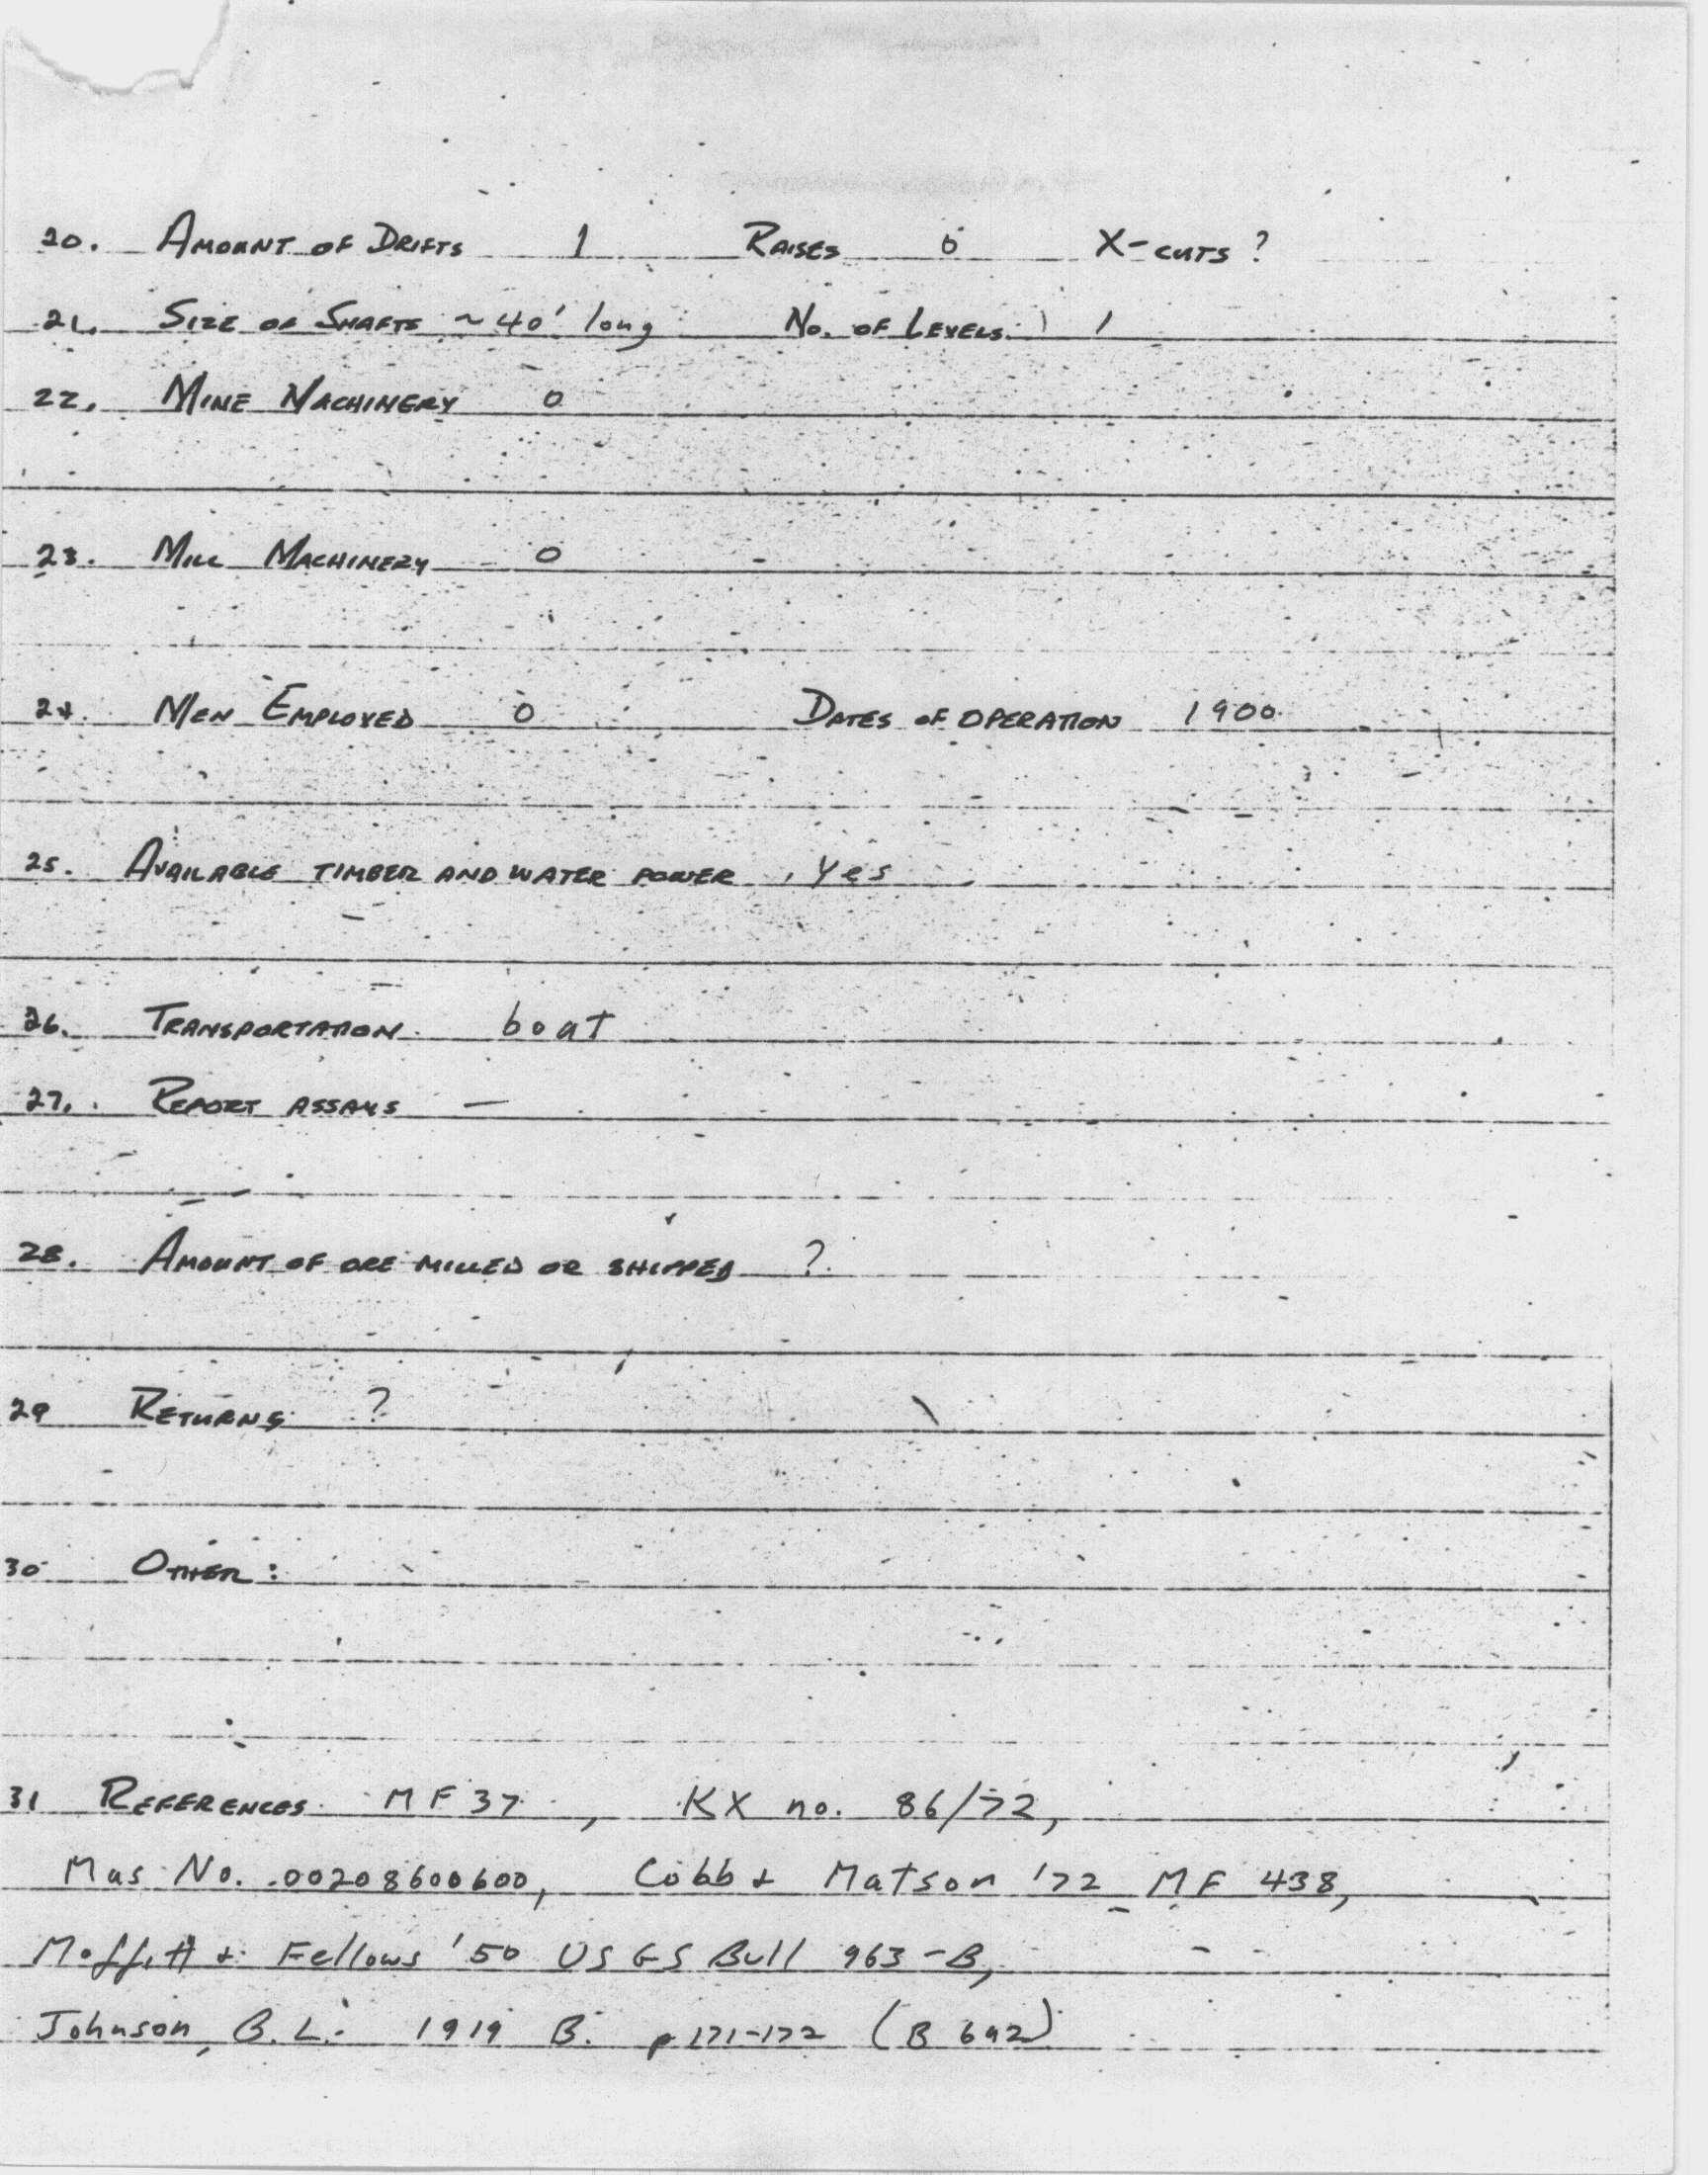 20. AMOUNT OF DRIFTS 1 RAISES 0 X-CUTS ?
21. SIZE OF SHAFTS ~40' long No. OF LEVELS 1
22. MINE MACHINERY 0
23. MILL MACHINERY 0
24. MEN EMPLOYED 0 DATES OF OPERATION 1900
25. AVAILABLE TIMBER AND WATER POWER , Yes
26. TRANSPORTATION boat
27. REPORT ASSAYS —
28. AMOUNT OF ORE MILLED OR SHIPPED ?
29 RETURNS ?
30 OTHER:
31 REFERENCES MF 37, KX no. 86/72,
Mas No. 00208600600, Cobb & Matson '72 MF 438,
Moffitt & Fellows '50 USGS Bull 963-B,
Johnson, B.L. 1919 B. p 171-172 (B 692)